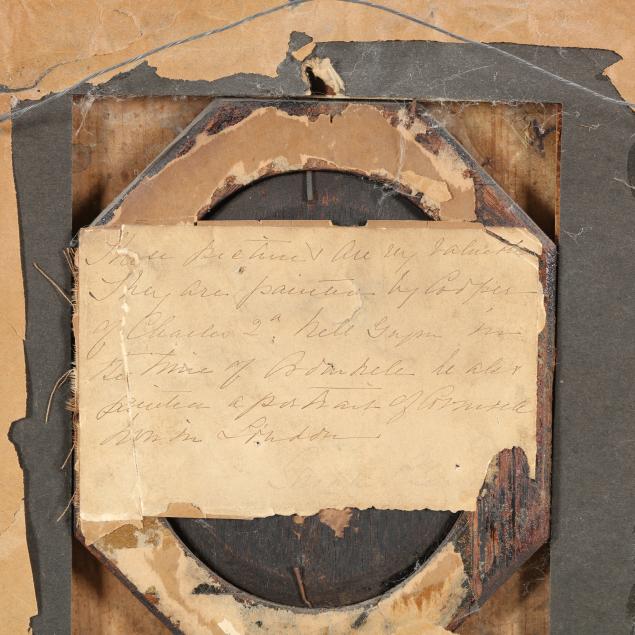 These pictures are very valuable
They are painted by Cooper
of Charles 2ᵈ, Nell Gwyn in
the time of he also
painted a portrait of Cromwell
now in London.